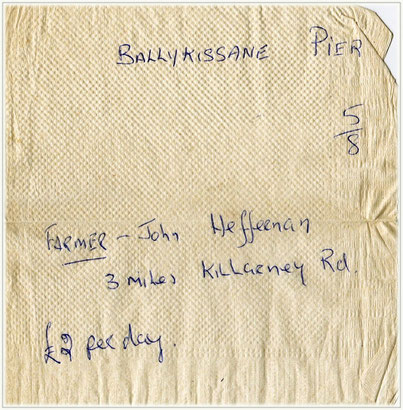 BALLYKISSANE PIER
5/8
FARMER - John Heffernan
3 miles Killarney Rd.
£2 per day.